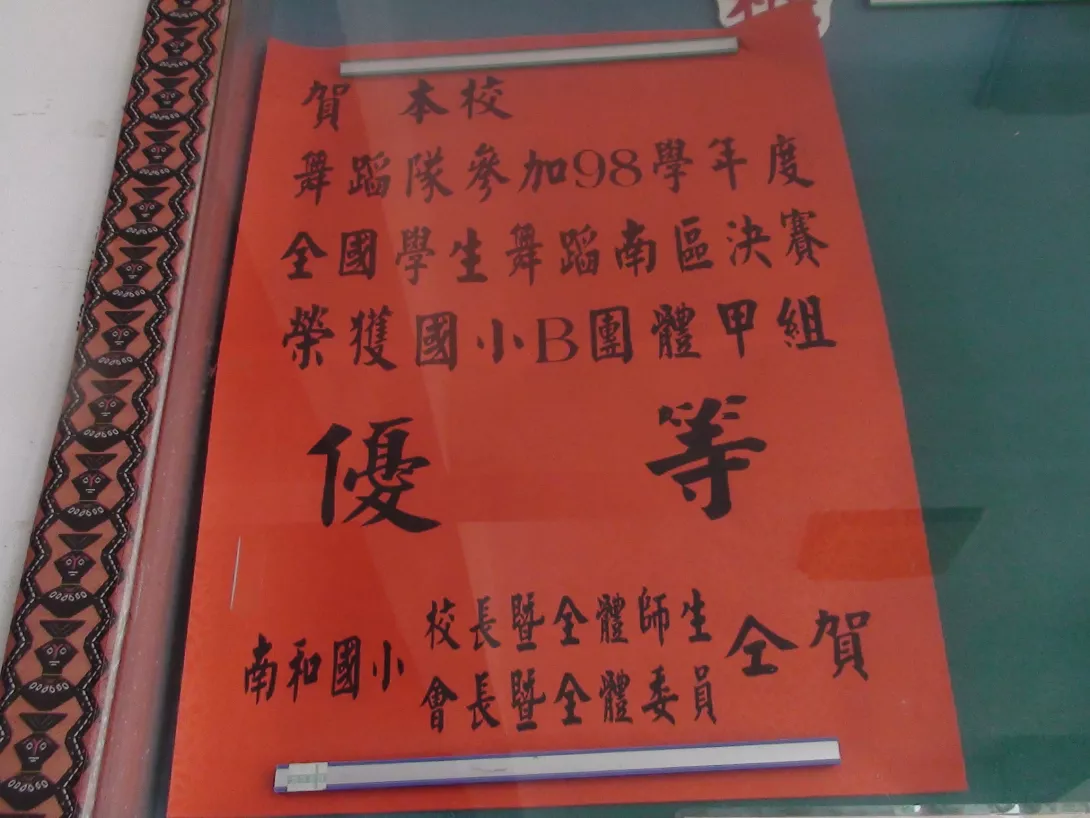 賀 本校
舞蹈隊參加98學年度
全國學生舞蹈南區決賽
榮獲國小B團體甲組
優等
南和國小 校長暨全體師生 仝賀
會長暨全體委員